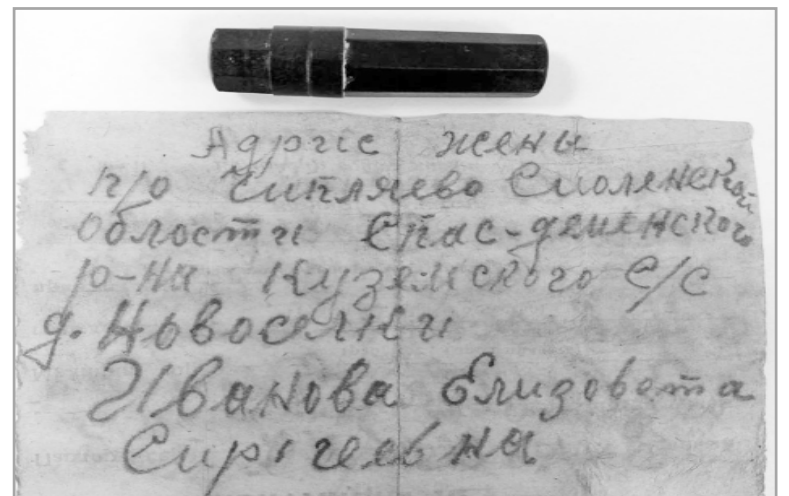 Адрис жены
п/о Чипляево Смоленской
облости Спас-деменского
р-на Куземского с/с
д. Новосёлки
Иванова Елизовета
Сиргеевна